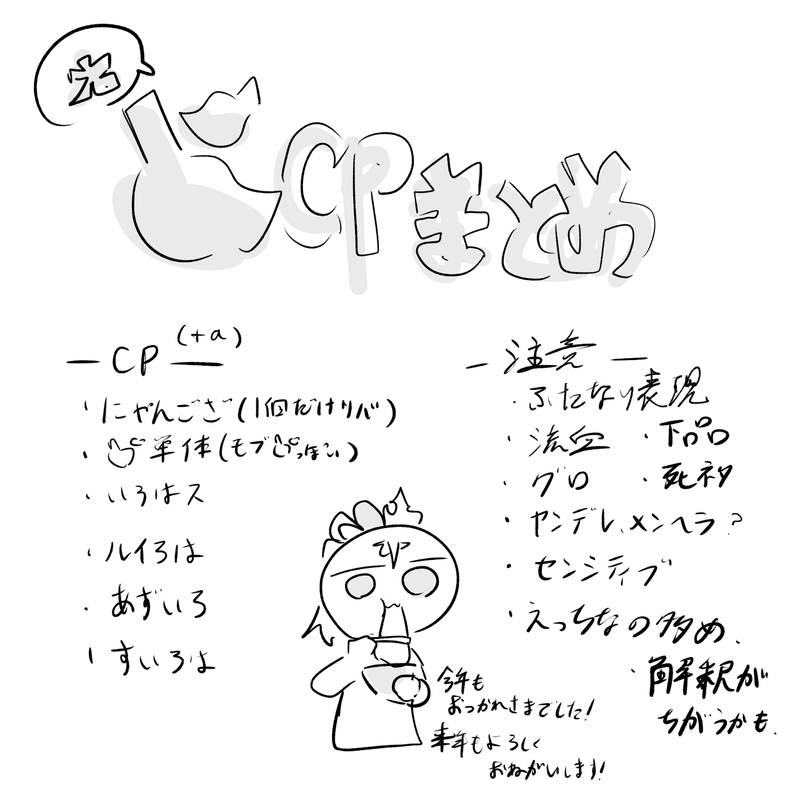 CPまとめ
ー CP (+α) ー
・にゃんござ(1個だけリバ)
・単体(モブっぽい)
・いろはス
・ルイろは
・あずいろ
・すいろは
ー 注意 ー
・ふたなり表現
・流血 ・下品
・グロ ・死ネタ
・ヤンデレ、メンヘラ?
・センシティブ
・えっちなの多め、
・解釈が
ちがうかも、
今年も
おつかれさまでした!
来年もよろしく
おねがいします!